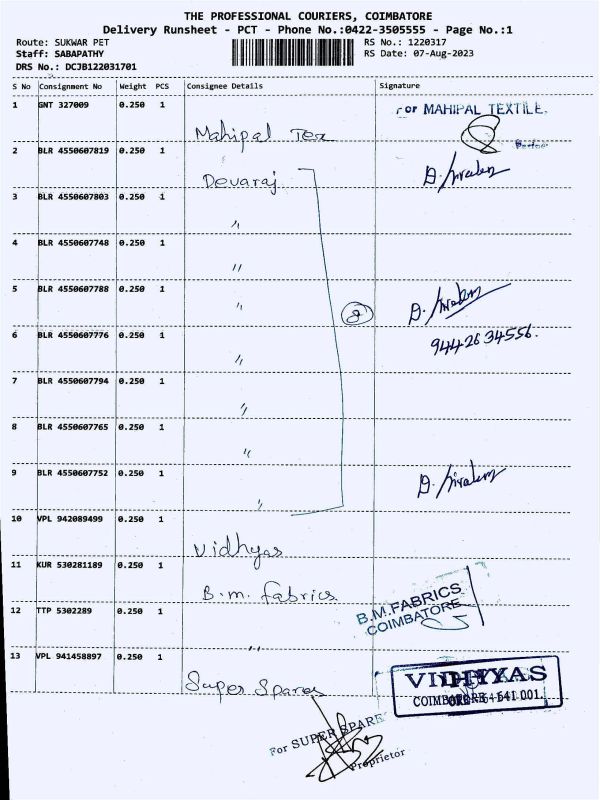 THE PROFESSIONAL COURIERS, COIMBATORE
Delivery Runsheet - PCT - Phone No.:0422-3505555 - Page No.:1
Route: SUKWAR PET
Staff: SABAPATHY
DRS No.: DCJB122031701
RS No.: 1220317
RS Date: 07-Aug-2023
S No Consignment No Weight PCS Consignee Details Signature
1 GNT 327009 0.250 1 Mahipal Tex
For MAHIPAL TEXTILE.
2 BLR 4550607819 0.250 1 Devaraj
3 BLR 4550607803 0.250 1 〃
4 BLR 4550607748 0.250 1 〃
5 BLR 4550607788 0.250 1 〃
8
6 BLR 4550607776 0.250 1 〃
94426 34556.
7 BLR 4550607794 0.250 1 〃
8 BLR 4550607765 0.250 1 〃
9 BLR 4550607752 0.250 1 〃
10 VPL 942089499 0.250 1 Vidhyas
11 KUR 530281189 0.250 1 B.m. fabrics
B.M.FABRICS
COIMBATORE
12 TTP 5302289 0.250 1 〃
13 VPL 941458897 0.250 1 Super Spares
VIDHYAS
COIMBATORE - 641 001.
For SUPER SPARE
Proprietor